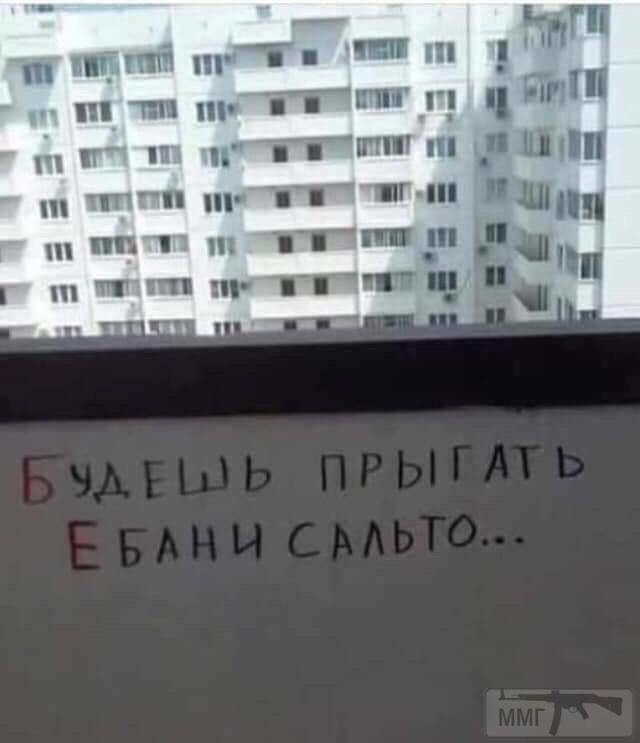 БУДЕШЬ ПРЫГАТЬ
ЕБАНИ САЛЬТО...
ММГ